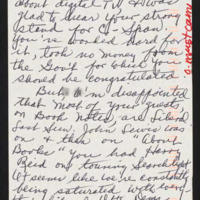 about digital TV & was
glad to hear your strong
stand for C-Span.
You've worked hard for
it, took no money from
the Govt for which you
should be congratulated
But I'm disappointed
that most of your guests
on Book Notes are Liberal
Last Sun, John Lewis was
on & then on "About
Books" you had Harry
Reid on touring Searchlight
It seems like we're constantly
being saturated with even